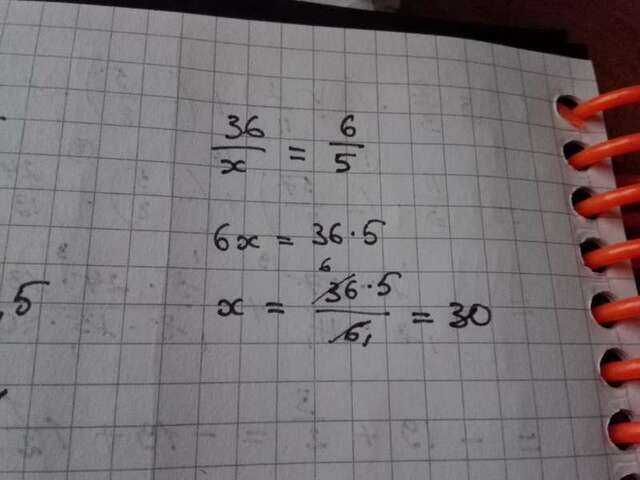 36/x = 6/5
6x = 36·5
x = 36·5/6 = 30
6
1
,5